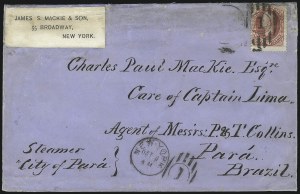 JAMES S. MACKIE & SON,
BROADWAY,
NEW YORK.
Charles Paul MacKie. Esqre
Care of Captain Lima.
Agent of Messrs: P&T. Collins.
Steamer
Pará.
"City of Pará"
Brazil.
NEW YORK